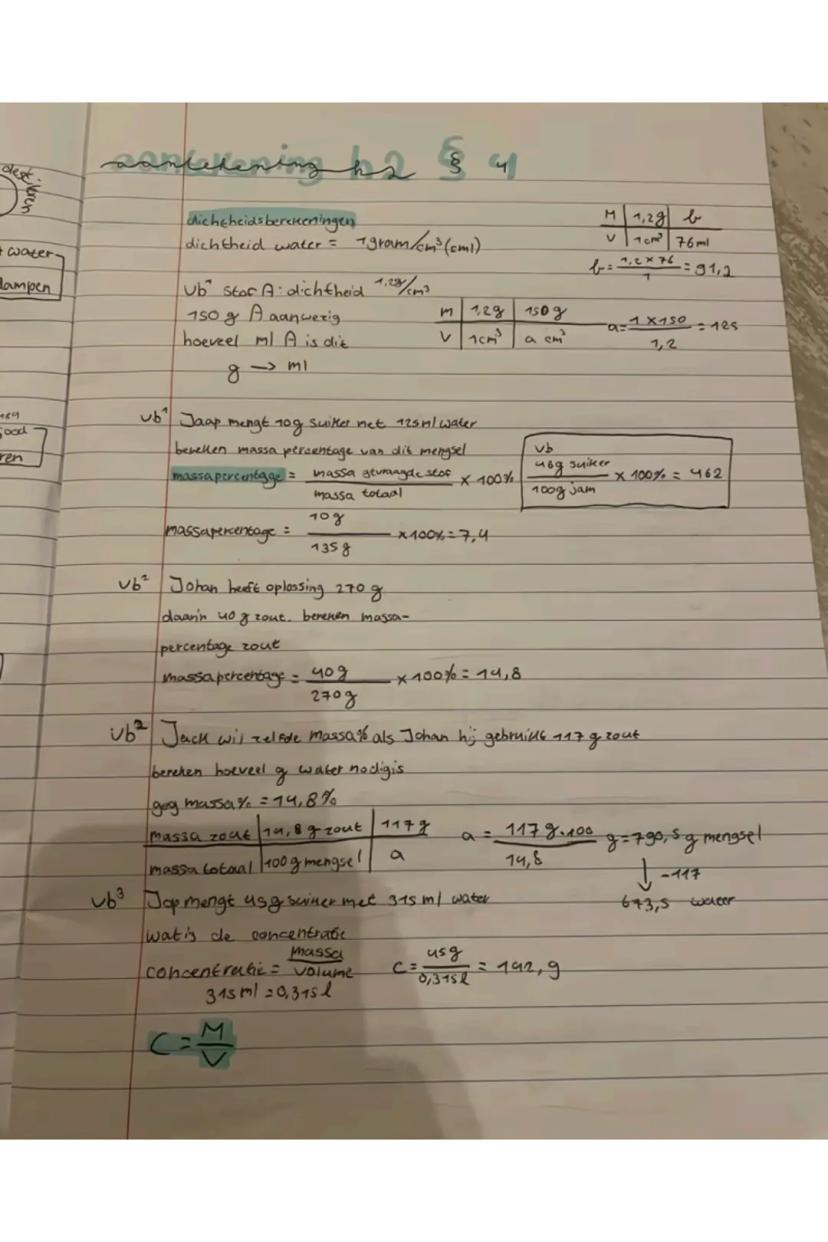 aantekening h2 § 4
dichtheidsberekeningen
dichtheid water = 1 gram/cm³ (cml)
M | 1,2g | b
V | 1cm³ | 76ml
b = 1,2 × 76 / 1 = 91,2
vb¹ stof A: dichtheid 1,2g/cm³
150 g A aanwezig
hoeveel ml A is dit
g → ml
m | 1,2g | 150g
V | 1cm³ | a cm³
a = 1 × 150 / 1,2 = 125
vb¹ Jaap mengt 10g suiker met 125ml water
bereken massa percentage van dit mengsel
massapercentage = massa gevraagde stof / massa totaal × 100%
vb
46g suiker / 100g jam × 100% = 462
massapercentage = 10g / 135g × 100% = 7,4
vb² Johan heeft oplossing 270 g
daarin 40 g zout. bereken massa-
percentage zout
massapercentage = 40g / 270g × 100% = 14,8
vb² Jack wil zelfde massa% als Johan hij gebruikt 117 g zout
bereken hoeveel g water nodig is
geg massa% = 14,8%
massa zout | 14,8 g zout | 117g
massa totaal | 100 g mengsel | a
a = 117 g · 100 / 14,8 g = 790,5 g mengsel
↓ -117
673,5 water
vb³ Jap mengt 45g suiker met 315 ml water
wat is de concentratie
concentratie = massa / volume
C = 45g / 0,315l = 142, g
315 ml = 0,315 l
C = M / V
water
dampen
ren